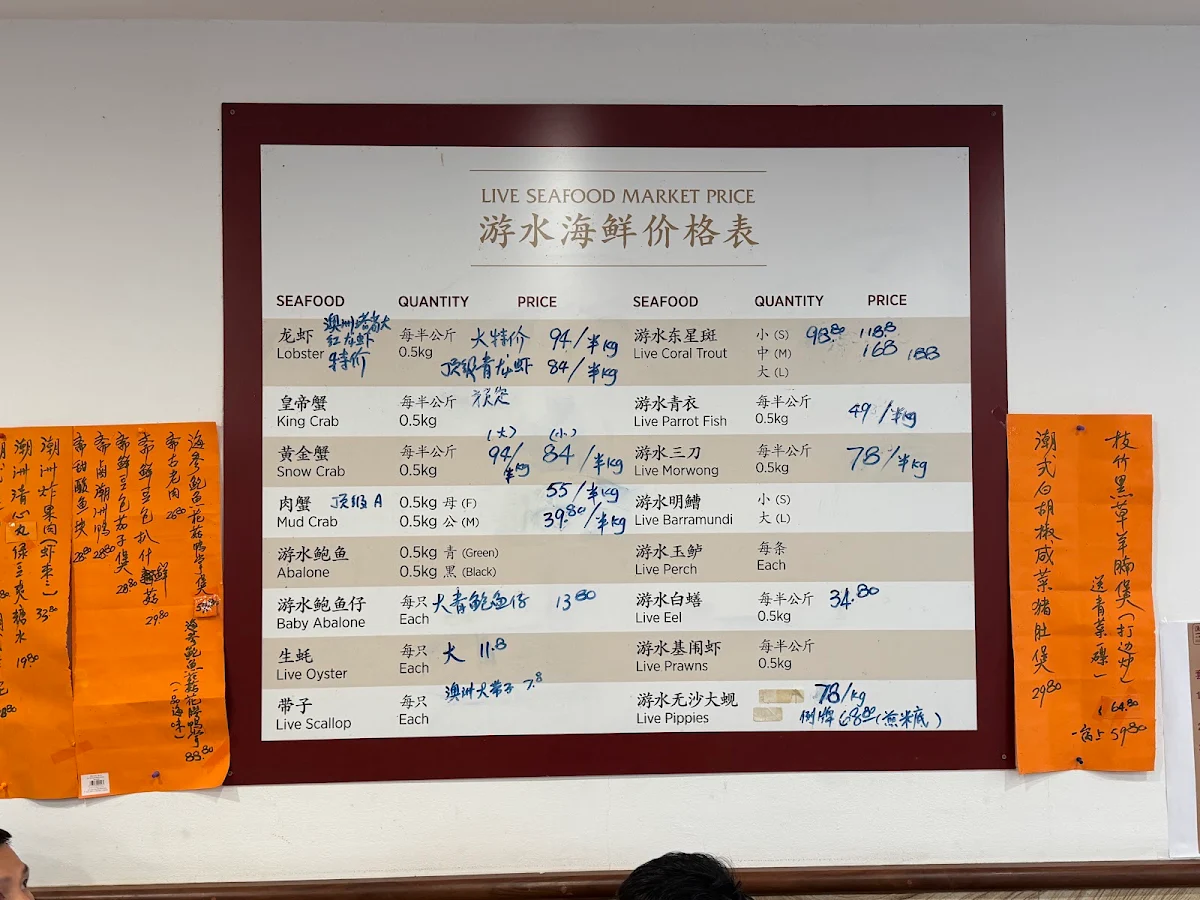 LIVE SEAFOOD MARKET PRICE
游水海鲜价格表
SEAFOOD QUANTITY PRICE
龙虾 澳洲 大 每半公斤 大特价 94/半kg
Lobster 红龙虾 0.5kg 顶级青龙虾 84/半kg
特价
皇帝蟹 每半公斤
King Crab 0.5kg
(大) (小)
黄金蟹 每半公斤 94/半kg 84/半kg
Snow Crab 0.5kg
肉蟹 顶级A 0.5kg 母 (F) 55/半kg
Mud Crab 0.5kg 公 (M) 39.80/半kg
游水鲍鱼 0.5kg 青 (Green)
Abalone 0.5kg 黑 (Black)
游水鲍鱼仔 每只 大青鲍鱼仔 13.80
Baby Abalone Each
生蚝 每只 大 11.8
Live Oyster Each
带子 每只 澳洲大带子 7.8
Live Scallop Each
SEAFOOD QUANTITY PRICE
游水东星斑 小 (S) 98.80 118.8
Live Coral Trout 中 (M) 168 188
大 (L)
游水青衣 每半公斤 49/半kg
Live Parrot Fish 0.5kg
游水三刀 每半公斤 78/半kg
Live Morwong 0.5kg
游水明鳕 小 (S)
Live Barramundi 大 (L)
游水玉鲈 每条
Live Perch Each
游水白鳝 每半公斤 34.80
Live Eel 0.5kg
游水基围虾 每半公斤
Live Prawns 0.5kg
游水无沙大蚬 78/kg
Live Pippies 68.00(煎米底)
海参鲍鱼花菇鸭掌煲
海参鲍鱼花菇花胶鸭掌 88.80
(一品海味)
斋咕老肉 26.80
斋鲜豆包扒什鲜菇 29.80
斋鲜豆包茄子煲 28.80
斋卤潮州鸭 28.80
斋甜酸鱼块 28.80
潮州炸果肉(虾枣) 33.80
潮州清心丸绿豆爽糖水 19.80
枝竹黑草羊腩煲(打边炉) 64.80
送青菜一碟
一窝上 59.80
潮式白胡椒咸菜猪肚煲 29.80